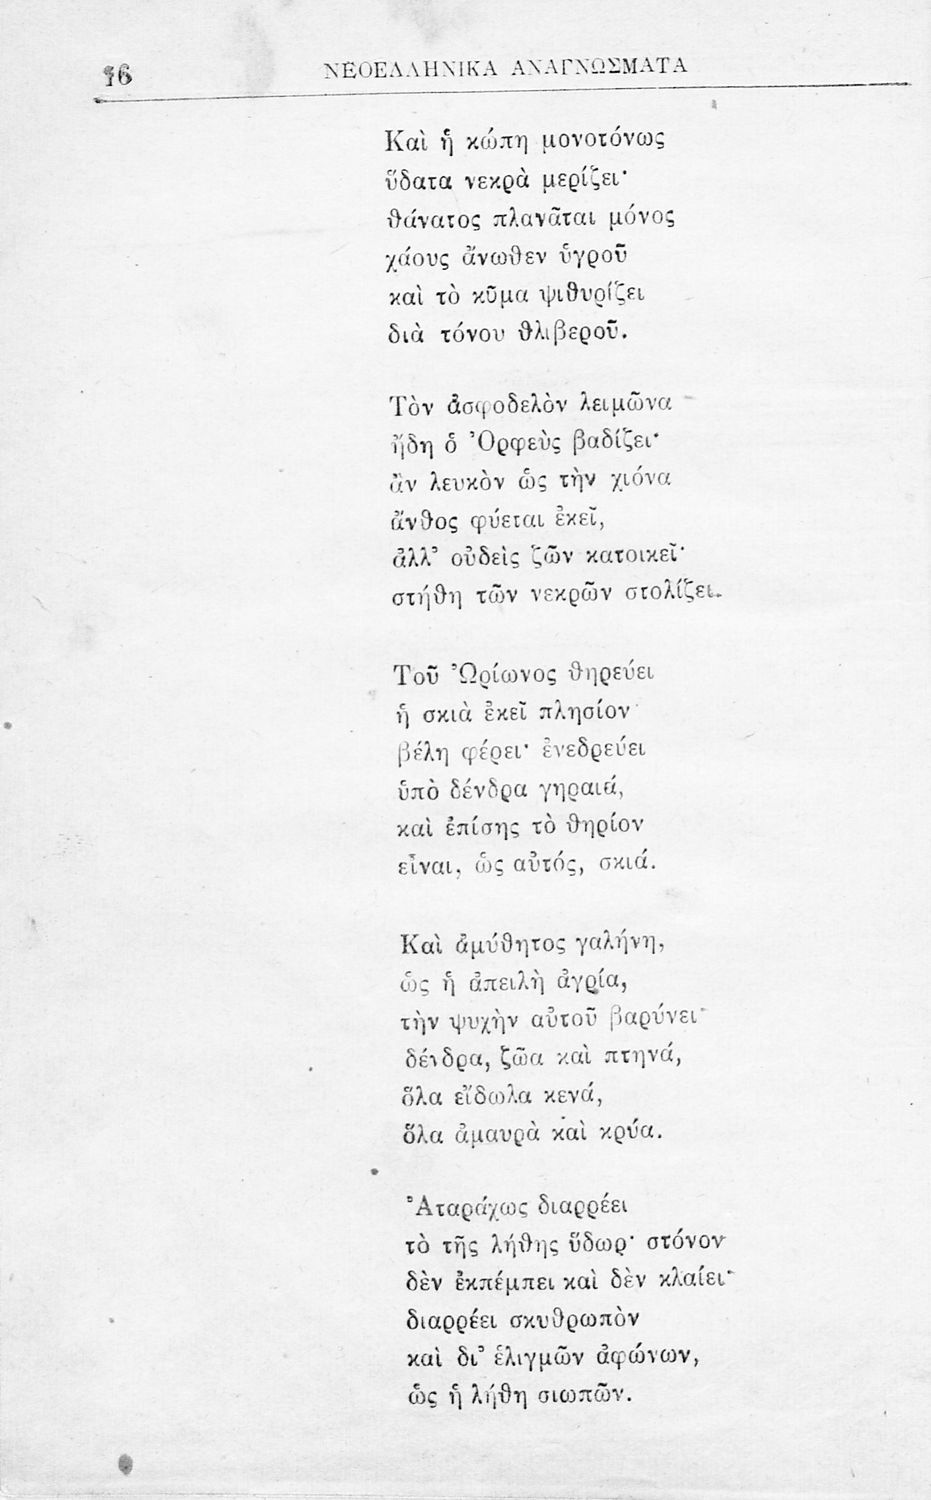 16
ΝΕΟΕΛΛΗΝΙΚΑ ΑΝΑΓΝΩΣΜΑΤΑ
Καὶ ἡ κώπη μονοτόνως
ὕδατα νεκρὰ μερίζει·
θάνατος πλανᾶται μόνος
χάους ἄνωθεν ὑγροῦ
καὶ τὸ κῦμα ψιθυρίζει
διὰ τόνου θλιβεροῦ.
Τὸν ἀσφοδελὸν λειμῶνα
ἤδη ὁ Ὀρφεὺς βαδίζει·
ἂν λευκὸν ὡς τὴν χιόνα
ἄνθος φύεται ἐκεῖ,
ἀλλ’ οὐδεὶς ζῶν κατοικεῖ·
στήθη τῶν νεκρῶν στολίζει.
Τοῦ Ὠρίωνος θηρεύει
ἡ σκιὰ ἐκεῖ πλησίον
βέλη φέρει· ἐνεδρεύει
ὑπὸ δένδρα γηραιά,
καὶ ἐπίσης τὸ θηρίον
εἶναι, ὡς αὐτός, σκιά.
Καὶ ἀμύθητος γαλήνη,
ὡς ἡ ἀπειλὴ ἀγρία,
τὴν ψυχὴν αὐτοῦ βαρύνει·
δένδρα, ζῶα καὶ πτηνά,
ὅλα εἴδωλα κενά,
ὅλα ἀμαυρὰ καὶ κρύα.
Ἀταράχως διαρρέει
τὸ τῆς λήθης ὕδωρ· στόνον
δὲν ἐκπέμπει καὶ δὲν κλαίει·
διαρρέει σκυθρωπὸν
καὶ δι’ ἑλιγμῶν ἀφώνων,
ὡς ἡ λήθη σιωπῶν.